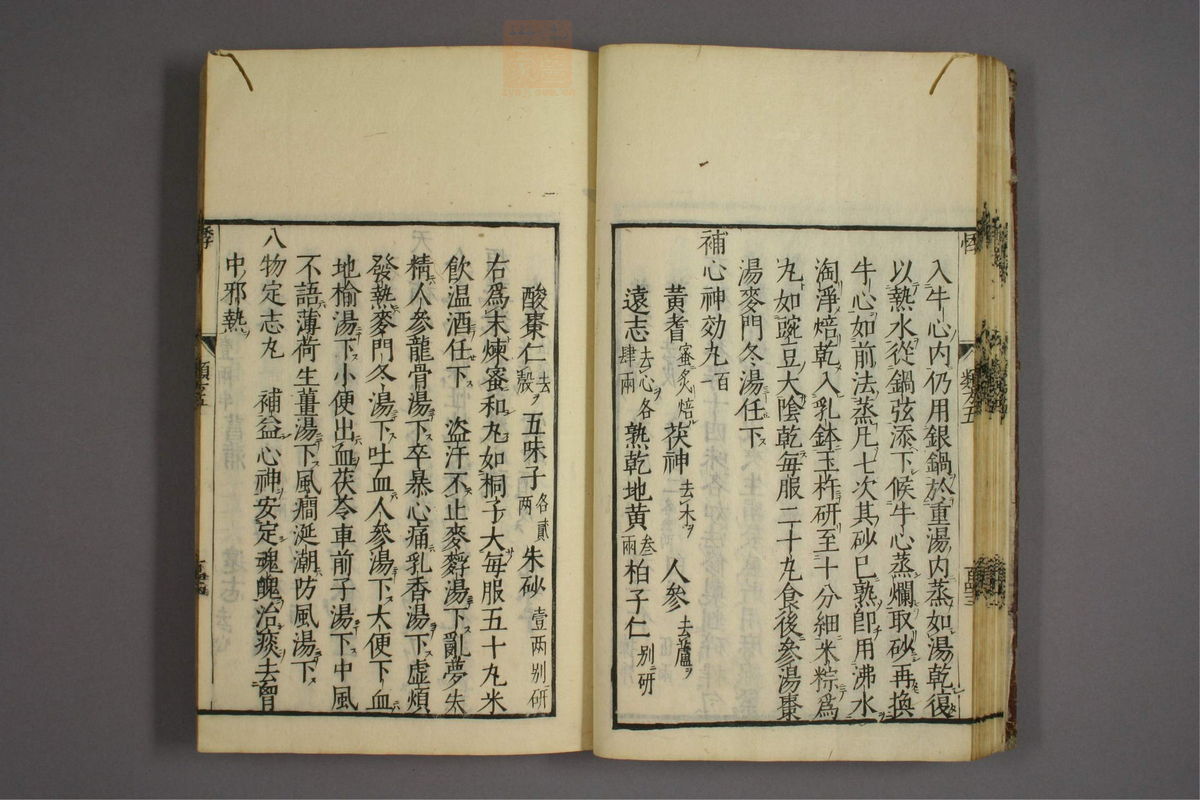 入牛心内仍用銀鍋於重湯内蒸如湯乾復
以熱水從鍋弦添下候牛心蒸爛取砂再換
牛心如前法蒸凡七次其砂已熟卽用沸水
淘淨焙乾入乳鉢玉杵研至十分細米粽爲
丸如豌豆大陰乾每服二十丸食後參湯棗
湯麥門冬湯任下
補心神効丸 百一
黄耆 蜜炙焙 茯神 去木 人參 去蘆
遠志 去心各肆兩 熟乾地黄 叁兩 柏子仁 别研
酸棗仁 去殼 五味子 各貳兩 朱砂 壹两别研
右爲末煉蜜和丸如桐子大每服五十丸米
飲温酒任下盗汗不止麥麩湯下亂夢失
精人參龍骨湯下卒暴心痛乳香湯下虚煩
發熱麥門冬湯下吐血人參湯下大便下血
地榆湯下小便出血茯苓車前子湯下中風
不語薄荷生薑湯下風癇涎潮防風湯下
八物定志丸 補益心神安定魂魄治痰去胷
中邪熱
類方五